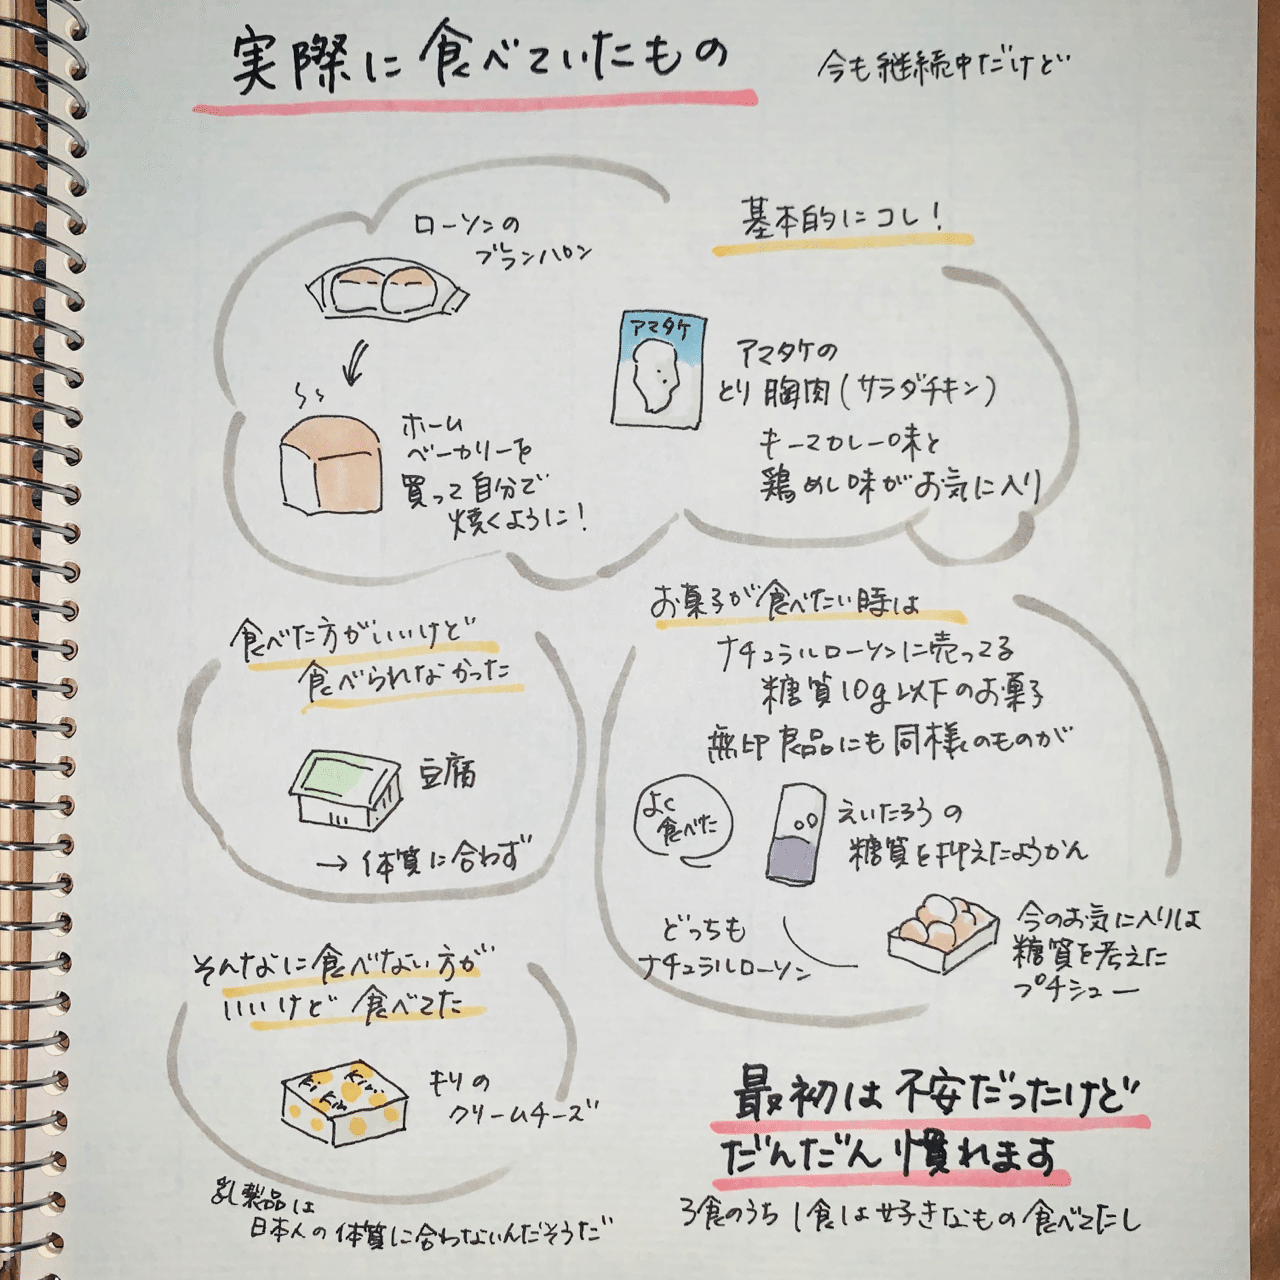 実際に食べていたもの
今も継続中だけど
基本的にコレ！
ローソンの
ブランパン
ホーム
ベーカリーを
買って自分で
焼くように！
アマタケ
アマタケの
とり胸肉(サラダチキン)
キーマカレー味と
鶏めし味がお気に入り
食べた方がいいけど
食べられなかった
豆腐
→体質に合わず
お菓子が食べたい時は
ナチュラルローソンに売ってる
糖質10g以下のお菓子
無印良品にも同様のものが
よく
食べた
えいたろうの
糖質を抑えたようかん
どっちも
ナチュラルローソン
今のお気に入りは
糖質を考えた
プチシュー
そんなに食べない方が
いいけど食べてた
キリの
クリームチーズ
乳製品は
日本人の体質に合わないんだそうだ
最初は不安だったけど
だんだん慣れます
3食のうち1食は好きなもの食べてたし